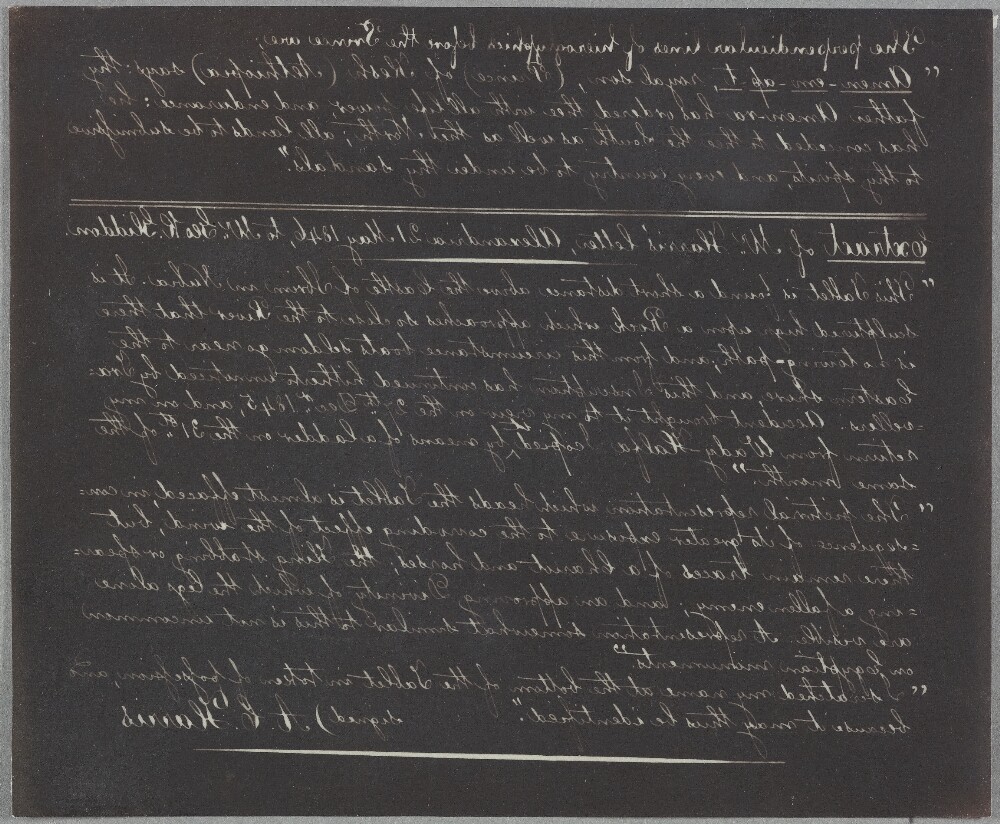 The perpendicular lines of hieroglyphics before the Prince are;
"Amen-em-ap-t, royal son, (Prince) of Kesh (Aethiopia) says: thy
father Amen-ra has ordered thee with all life, power and endurance: he
has conceded to thee the South as well as the North; all lands to be submissive
to thy spirits, and every country to be under thy sandals."
Extract of Mr. Harris' letter, Alexandria 21 May 1846, to Mr. Geo R. Gliddon.
"This Tablet is found a short distance above the Castle of Ibrim in Nubia. It is
sculptured high upon a Rock which approaches so close to the River that there
is no towing-path, and from this circumstance boats seldom go near to the
Eastern shore, and this Inscription has continued hitherto unnoticed by Tra-
=vellers. Accident brought it to my view on the 27th Decr. 1845, and on my
return from Wady-Halfa I copied, by means of a ladder on the 31st. of the
same month."
"The pictorial representation which heads the Tablet is almost effaced in con=
=sequence of its greater exposure to the corroding effect of the wind; but
there remain traces of a Chariot and horses, the King stabbing or spear=
=ing a fallen enemy, and an approving Divinity of which the legs alone
are visible. A representation somewhat similar to this is not uncommon
on Egyptian monuments."
"I scratched my name at the bottom of the Tablet in token of possession, and
because it may thus be identified." signed) A. C. Harris